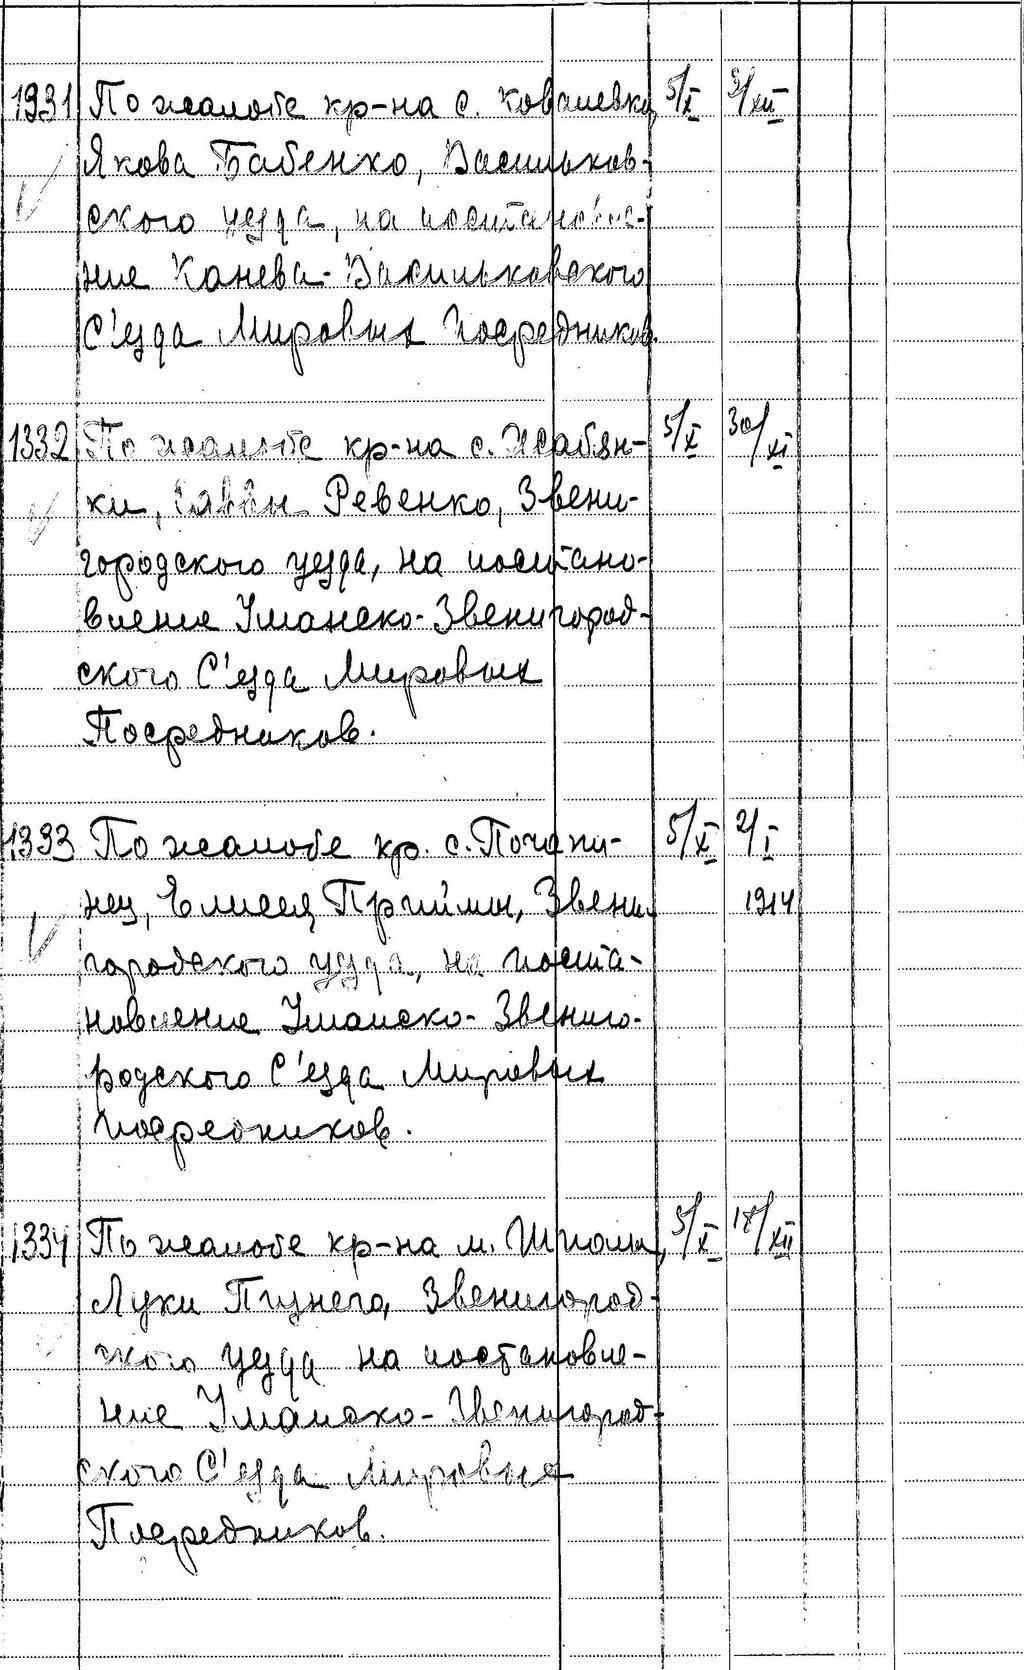 1931 По жалобе кр-на с. Ковалевки, 5/X 3/XII
Якова Бабенко, Васильков-
ского уезда, на постановле-
ние Канева-Васильковского
С'езда Мировых Посредников.
1332 По жалобе кр-на с. Жабян- 5/X 30/XI
ки, Саввы Ревенко, Звени-
городского уезда, на постано-
вление Уманско-Звенигород-
ского С'езда Мировых
Посредников.
1333 По жалобе кр. с. Почапи- 5/X 2/I
нец, Елисея Приймы, Звени- 1914
городского уезда, на поста-
новление Уманско-Звениго-
родского С'езда Мировых
Посредников.
1334 По жалобе кр-на м. Шполы, 5/X 18/XII
Луки Звенигород-
ского уезда на постановле-
ние Уманско-Звенигород-
ского С'езда Мировых
Посредников.